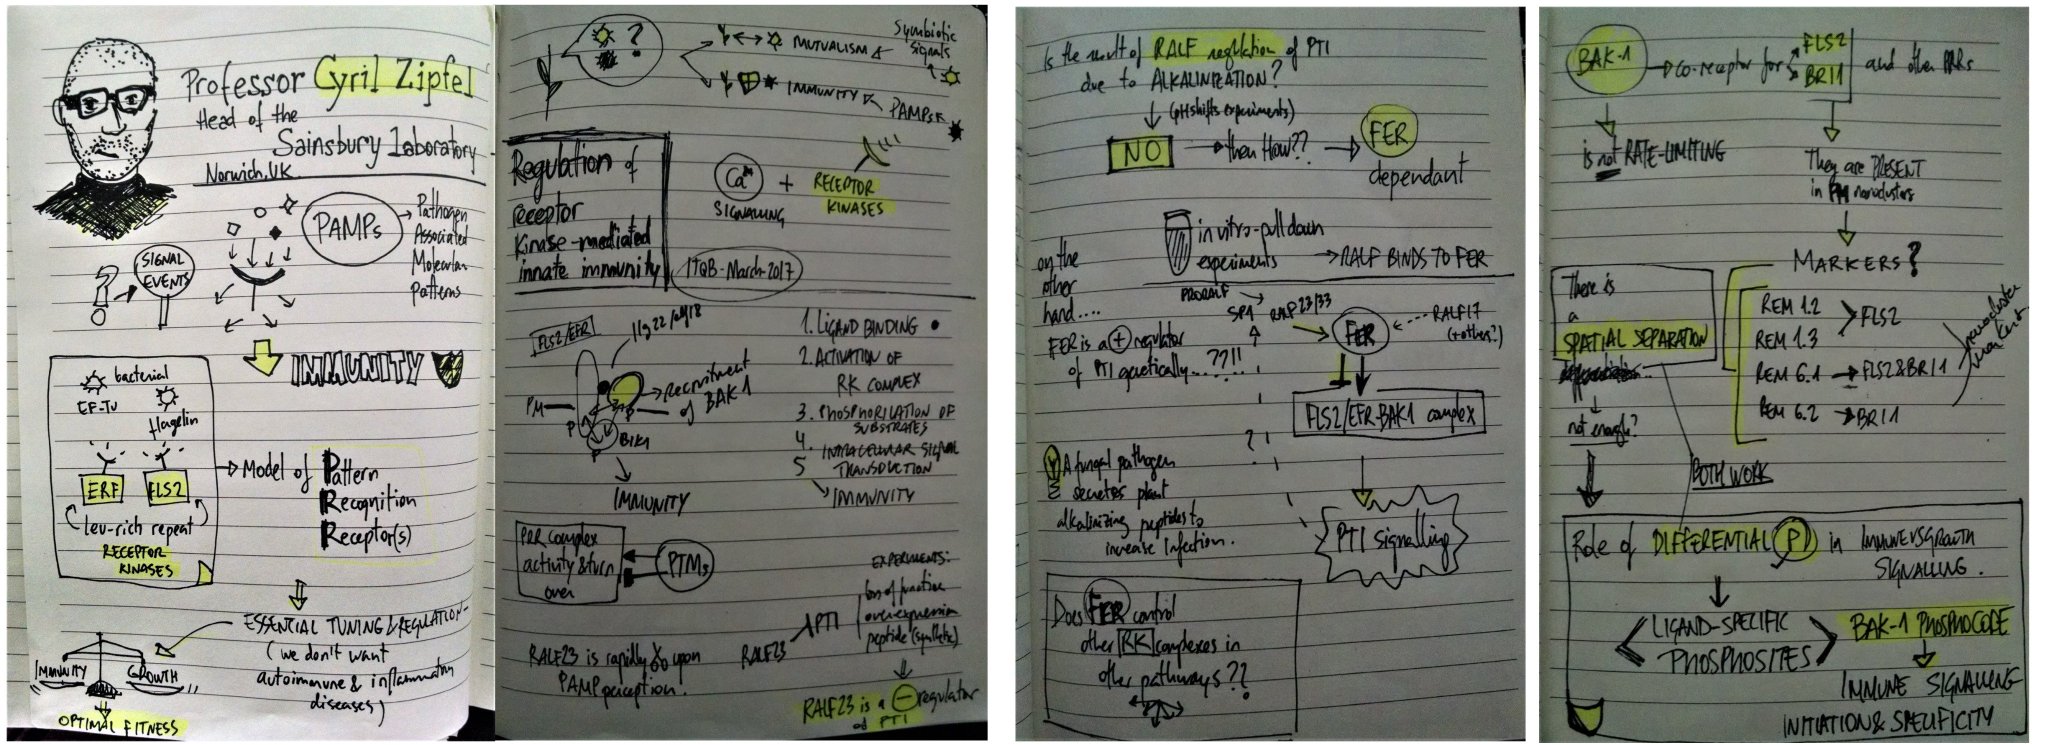 Professor Cyril Zipfel
Head of the
Sainsbury Laboratory
Norwich, UK
PAMPs
Pathogen
Associated
Molecular
patterns
SIGNAL
EVENTS
?
IMMUNITY
bacterial
EF-TU
flagelin
ERF
FLS2
leu-rich repeat
RECEPTOR
KINASES
Model of Pattern
Recognition
Receptor(s)
ESSENTIAL TUNING & REGULATION
(we don't want
autoimmune & inflammation
diseases)
IMMUNITY
GROWTH
OPTIMAL FITNESS
?
MUTUALISM
Symbiotic
signals
IMMUNITY
PAMPs
Regulation of
receptor
kinase-mediated
innate immunity
Ca2+
SIGNALLING
+
RECEPTOR
KINASES
ITQB-March-2017
FLS2/EFR
flg22/elf18
PM
recruitment
of BAK1
P
BIK1
P
IMMUNITY
1. LIGAND BINDING
2. ACTIVATION OF
RK COMPLEX
3. PHOSPHORILATION OF
SUBSTRATES
4. INTRACELLULAR SIGNAL
5 TRANSDUCTION
IMMUNITY
PRR complex
activity & turn
over
PTMs
EXPERIMENTS:
loss of function
overexpression
peptide (synthetic)
RALF23
PTI
RALF23 is rapidly upon
PAMP perception.
RALF23 is a - regulator
of PTI
Is the result of RALF regulation of PTI
due to ALKALINIZATION?
(pH shifts experiments)
NO
then How??
FER
dependant
in vitro-pull down
experiments
RALF BINDS TO FER
on the
other
hand....
FER is a + regulator
of PTI genetically...??!!
PRORALF
SP1
RALF23/33
FER
RALF17
(+others?)
FLS2/EFR-BAK1 complex
?
PTI signalling
A fungal pathogen
secretes plant
alkalinizing peptides to
increase infection.
Does FER control
other RK complexes in
other pathways??
BAK-1
co-receptor for
FLS2
BRI1
and other PRRs
is not RATE-LIMITING
They are PRESENT
in PM nanoclusters
MARKERS?
There is
a
SPATIAL SEPARATION
not enough?
REM 1.2
REM 1.3
FLS2
REM 6.1
FLS2 & BRI1
REM 6.2
BRI1
nanocluster
markers
BOTH WORK
Role of DIFFERENTIAL P in IMMUNEVSGROWTH
SIGNALLING.
LIGAND-SPECIFIC
PHOSPHOSITES
BAK-1 PHOSPHOCODE
IMMUNE SIGNALLING
INITIATION & SPECIFICITY